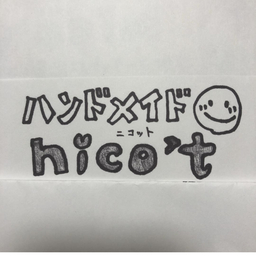 ハンドメイド
ニコット
nico't